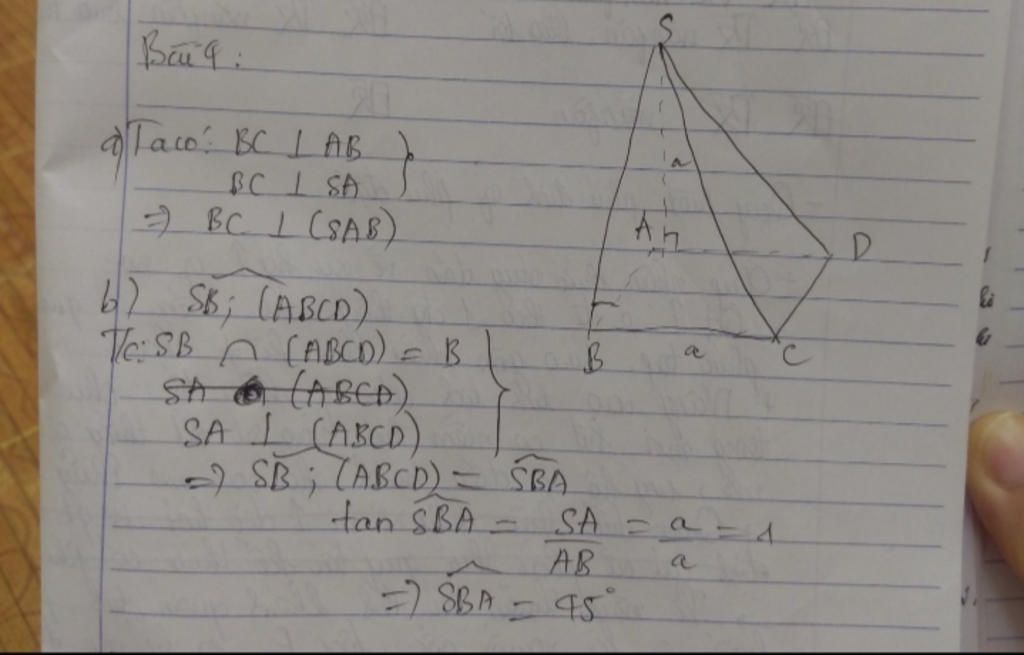 Bài 4:
a) Ta có: BC ⊥ AB
BC ⊥ SA
=> BC ⊥ (SAB)
b) SB; (ABCD)
Tc: SB ∩ (ABCD) = B
SA ⊥ (ABCD)
=> SB; (ABCD) = SBA
tan SBA = SA/AB = a/a = 1
=> SBA = 45°
S
a
A
D
B
a
C